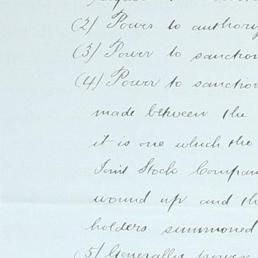 (2) Power to authorize
(3) Power to sanction
(4) Power to sanction
made between the
it is one which the
Joint Stock Compan
wound up and th
holders summoned
(5) Generally power